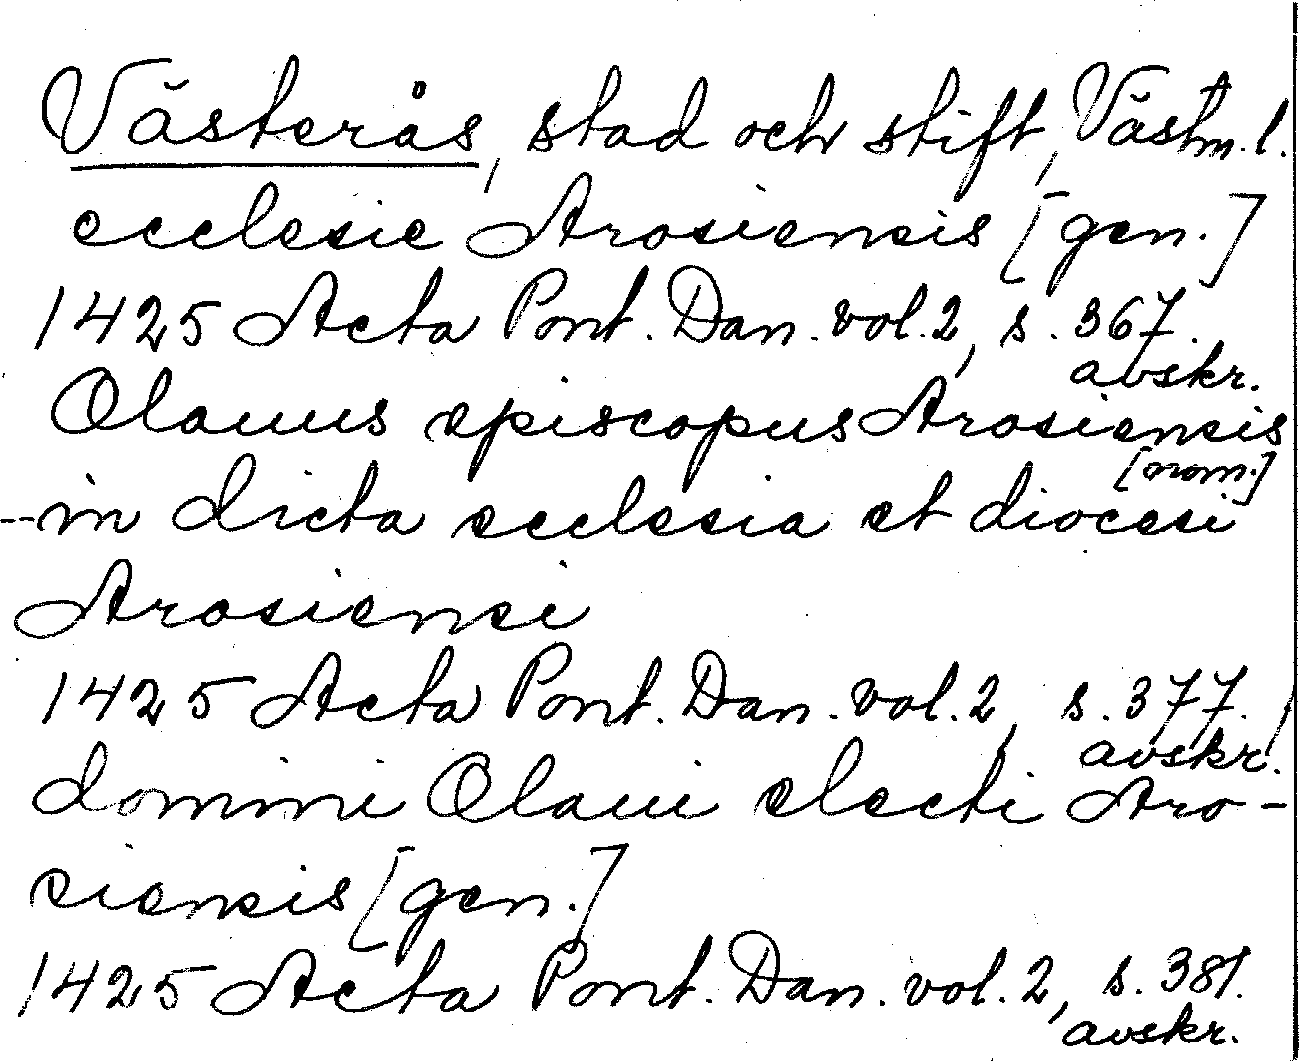 Västerås, stad och stift, Västm. l.
ecclesie Arosiensis [gen.]
1425 Acta Pont. Dan. vol. 2, s. 367.
avskr.
Olauus episcopus Arosiensis
[nom.]
-- in dicta ecclesia et diocesi
Arosiensi
1425 Acta Pont. Dan. vol. 2, s. 377.
avskr.
domini Olaui electi Aro-
siensis [gen.]
1425 Acta Pont. Dan. vol. 2, s. 381.
avskr.